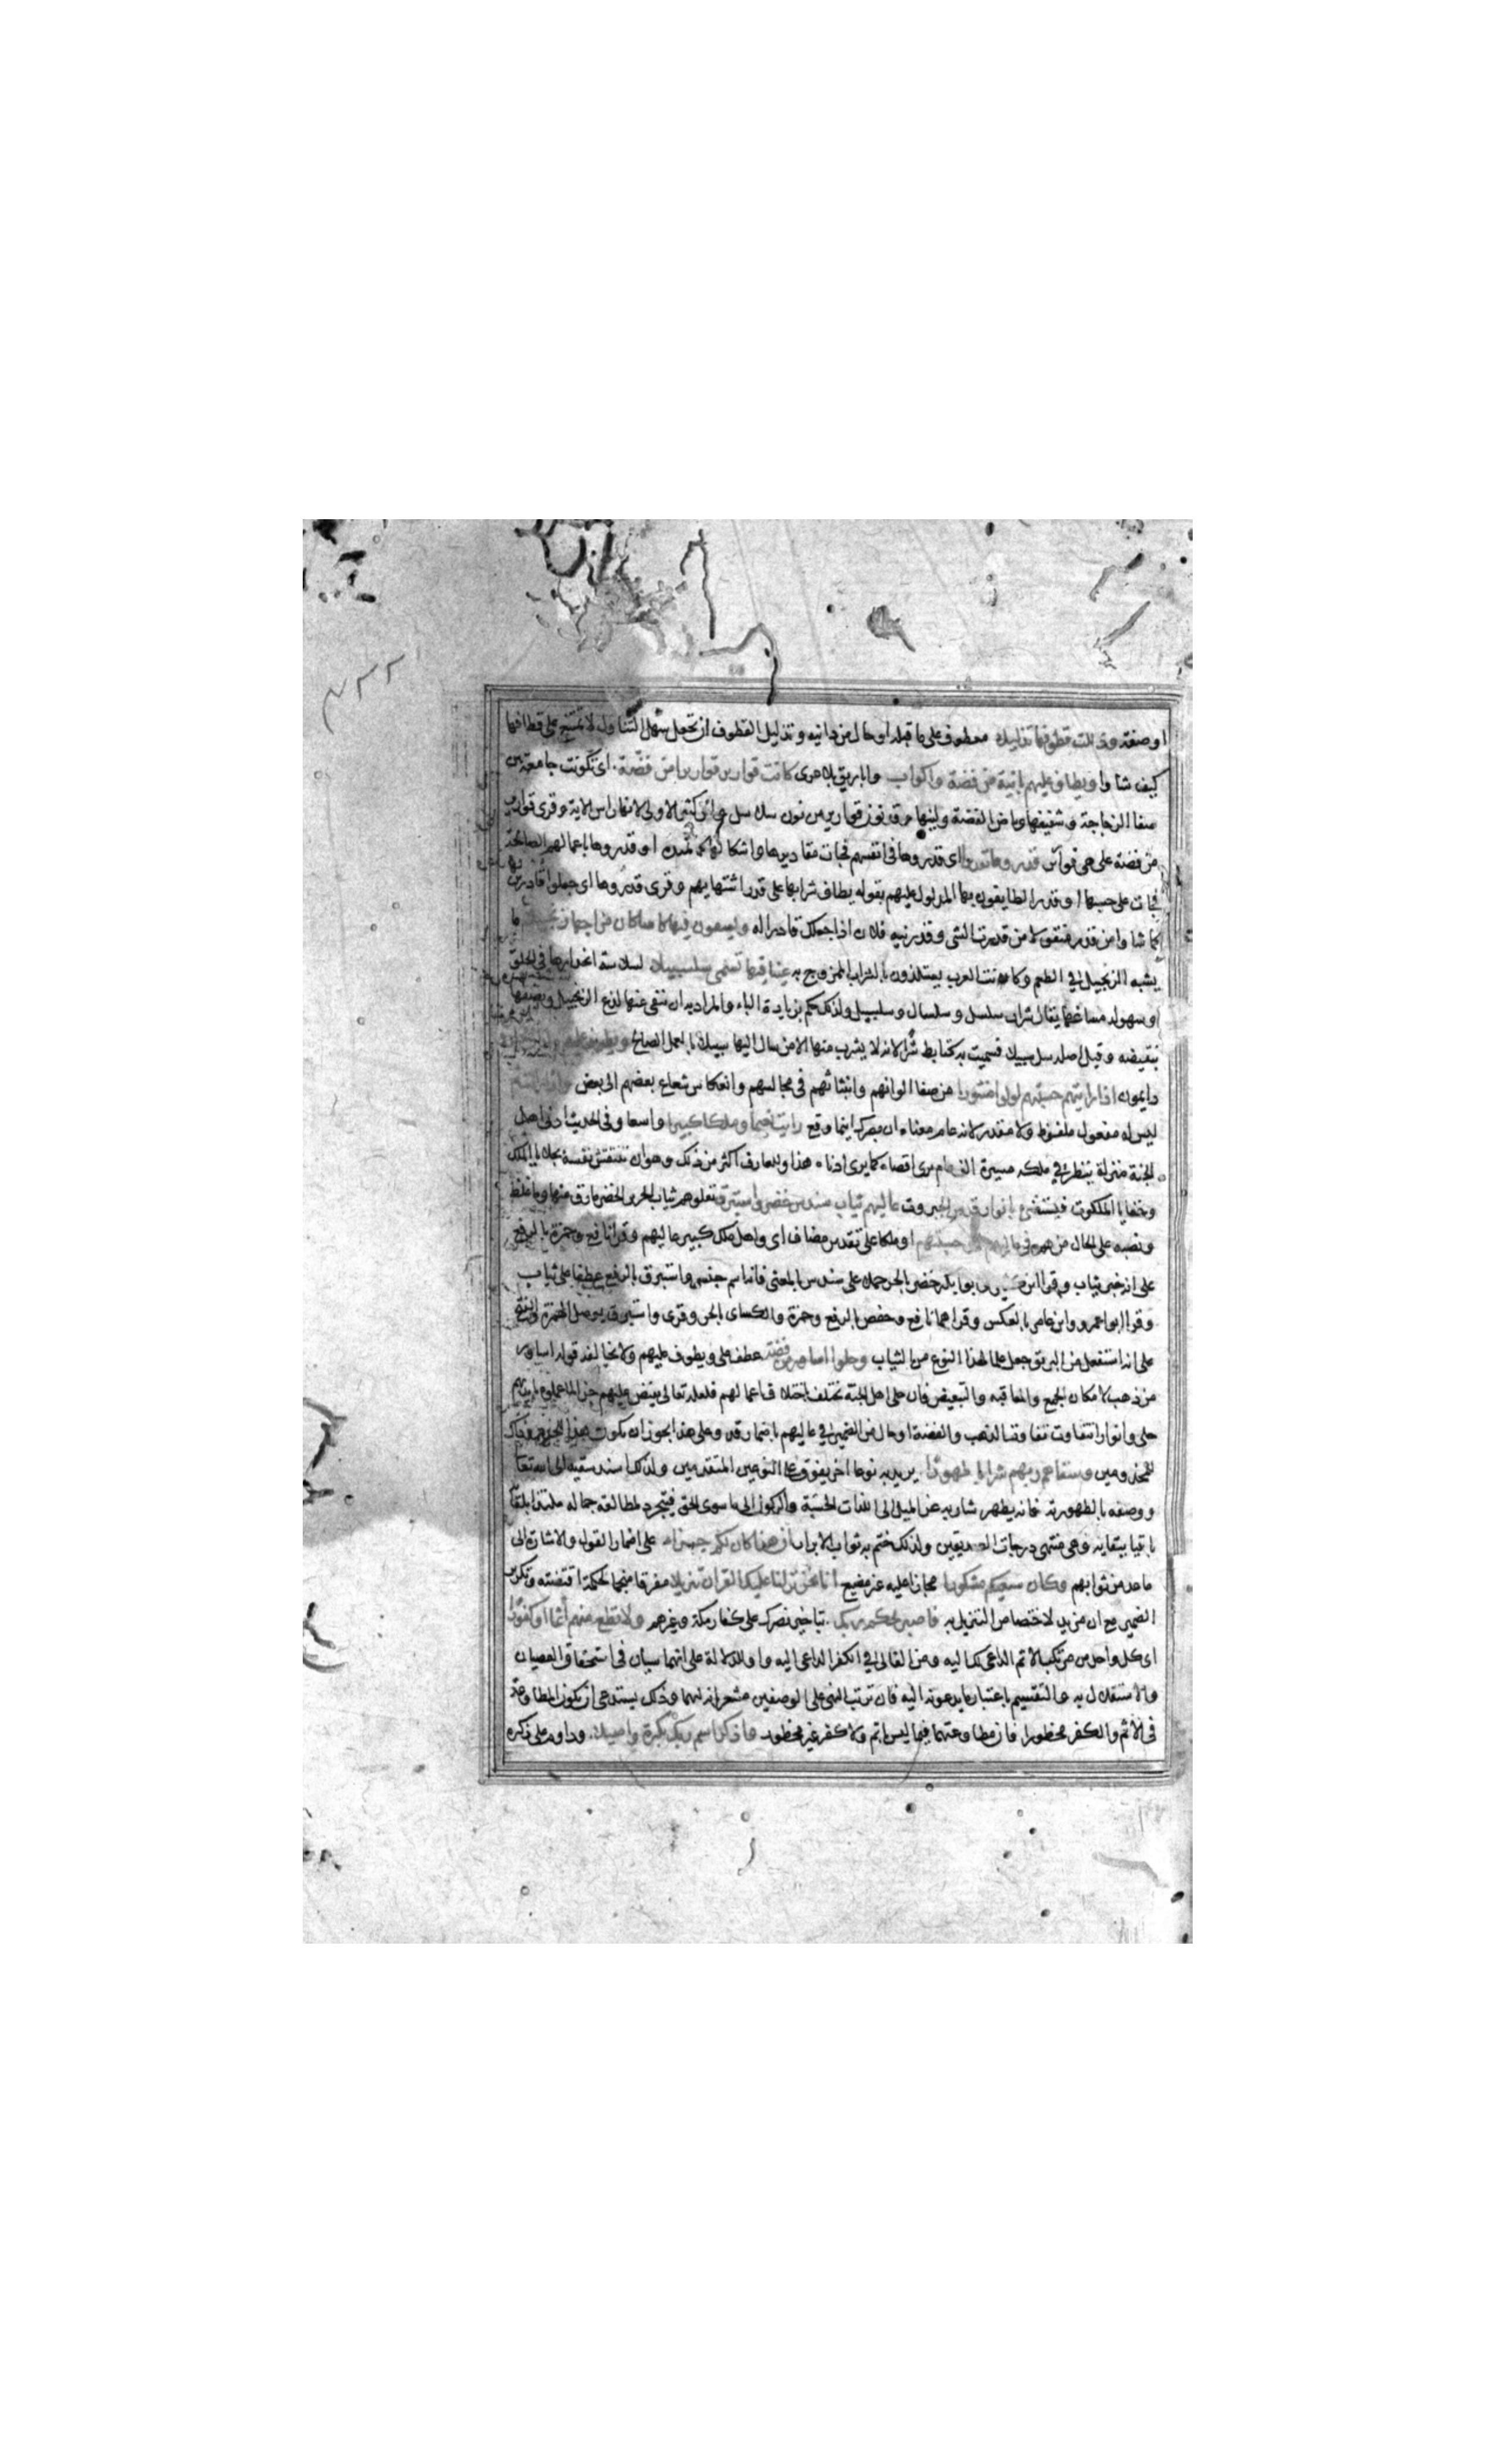 او صفة وذللت قطوفها تذليلا معطوف على ما قبله او حال من دانية وتذليل القطوف ان تجعل سهل التناول لا تمتنع على قطافها
كيف شاوا ويطاف عليهم بانية من فضة واكواب واباريق بلا عرى كانت قوارير قوارير من فضة اى تكونت جامعة بين
صفا الزجاجة وشفيفها وبياض الفضة ولينها وقد نون قوارير من نون سلاسل وابن كثير الاولى لانها راس الاية وقرى قوارير
من فضة على هى قوارير قدروها تقديرا اى قدروها فى انفسهم فجات مقاديرها واشكالها كما تمنوه او قدروها باعمالهم الصالحة
فجات على حسبها او قدر الطايفون بها المدلول عليهم بقوله يطاف شرابها على قدر اشتهايهم وقرى قدروها اى جعلوا قادرين
كما شاوا من قدر منقولا من قدرت الشى وقدرنيه فلان اذا جعلك قادرا له ويسقون فيها كاسا كان مزاجها زنجبيلا ما
يشبه الزنجبيل فى الطعم وكانت العرب يستلذون بالشراب الممزوج به عينا فيها تسمى سلسبيلا لسلاسة انحدارها فى الحلق
او سهولة مساغها يقال شراب سلسل وسلسال وسلسبيل ولذلك حكم بزيادة الباء والمراد به ان تنفى عنها لذع الزنجبيل ويصفها
بنقيضه وقيل اصله سل سبيلا فسميت به كتابط شرا لانه لا يشرب منها الا من سال اليها سبيلا بالعمل الصالح ويطوف عليهم ولدان
دايمون اذا رايتهم حسبتهم لولوا منثورا من صفا الوانهم وانبثاثهم فى مجالسهم وانعكاس شعاع بعضهم الى بعض واذا رايت ثم
ليس له مفعول ملفوظ ولا مقدر لانه عام معناه ان بصرك اينما وقع رايت نعيما وملكا كبيرا واسعا وفى الحديث ادنى اهل
الجنة منزلة ينظر فى ملكه مسيرة الف عام يرى اقصاه كما يرى ادناه هذا وللعارف اكثر من ذلك وهو ان تنتقش نفسه بجلايا الملك
وخفايا الملكوت فيستضى بانوار قدس الجبروت عاليهم ثياب سندس خضر واستبرق تعلوهم ثياب الحرير الخضر مارق منها وما غلظ
ونصبه على الحال من هم فى عاليهم او حسبتهم او ملكا على تقدير مضاف اى واهل ملك كبير عاليهم وقرا نافع وحمزة بالرفع
على انه خبر ثياب وقرا ابن كثير وابو بكر خضر بالجر حملا على سندس بالمعنى فانه اسم جنس واستبرق بالرفع عطفا على ثياب
وقرا ابو عمرو وابن عامر بالعكس وقراهما نافع وحفص بالرفع وحمزة والكساى بالجر وقرى واستبرق بوصل الهمزة والفتح
على انه استفعل من البريق جعل علما لهذا النوع من الثياب وحلوا اساور من فضة عطف على ويطوف عليهم ولا يخالفه قوله اساور
من ذهب لامكان الجمع والمعاقبة والتبعيض فان حلى اهل الجنة تختلف باختلاف اعمالهم فلعله تعالى يفيض عليهم جزا لما عملوه بايديهم
حلى وانوارا تتفاوت تفاوت الذهب والفضة او حال من الضمير فى عاليهم باضمار قد وعلى هذا يجوز ان يكون هذا للخدم وذلك
للمخدومين وسقاهم ربهم شرابا طهورا يريد به نوعا اخر يفوق على النوعين المتقدمين ولذلك اسند سقيه الى الله تعا
ووصفه بالطهورية فانه يطهر شاربه عن الميل الى اللذات الحسية والركون الى ما سوى الحق فيتجرد لمطالعة جماله ملتذا بلقا
باقيا ببقايه وهى منتهى درجات الصديقين ولذلك ختم به ثواب الابرار ان هذا كان لكم جزاء على اضمار القول والاشارة الى
ما عد من ثوابهم وكان سعيكم مشكورا مجازا عليه غير مضيع انا نحن نزلنا عليك القران تنزيلا مفرقا منجما لحكمة اقتضته وتكرير
الضمير مع ان مزيد لاختصاص التنزيل به فاصبر لحكم ربك بتاخير نصرك على كفار مكة وغيرهم ولا تطع منهم اثما او كفورا
اى كل واحد من مرتكب الاثم الداعى لك اليه ومن الغالى فى الكفر الداعى اليه واو للدلالة على انهما سيان فى استحقاق العصيان
والاستقلال به والتقسيم باعتبار ما يدعونه اليه فان ترتب النهى على الوصفين مشعر انه لهما وذلك يستدعى ان يكون المطاوعة
فى الاثم والكفر محظورا فان مطاوعتهما فيما ليس باثم ولا كفر غير محظور واذكر اسم ربك بكرة واصيلا وداوم على ذكره